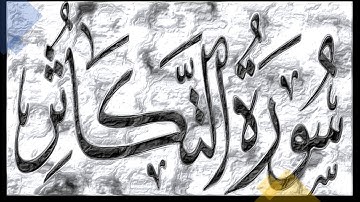 سُورَةُ التَّكَاثُرِ